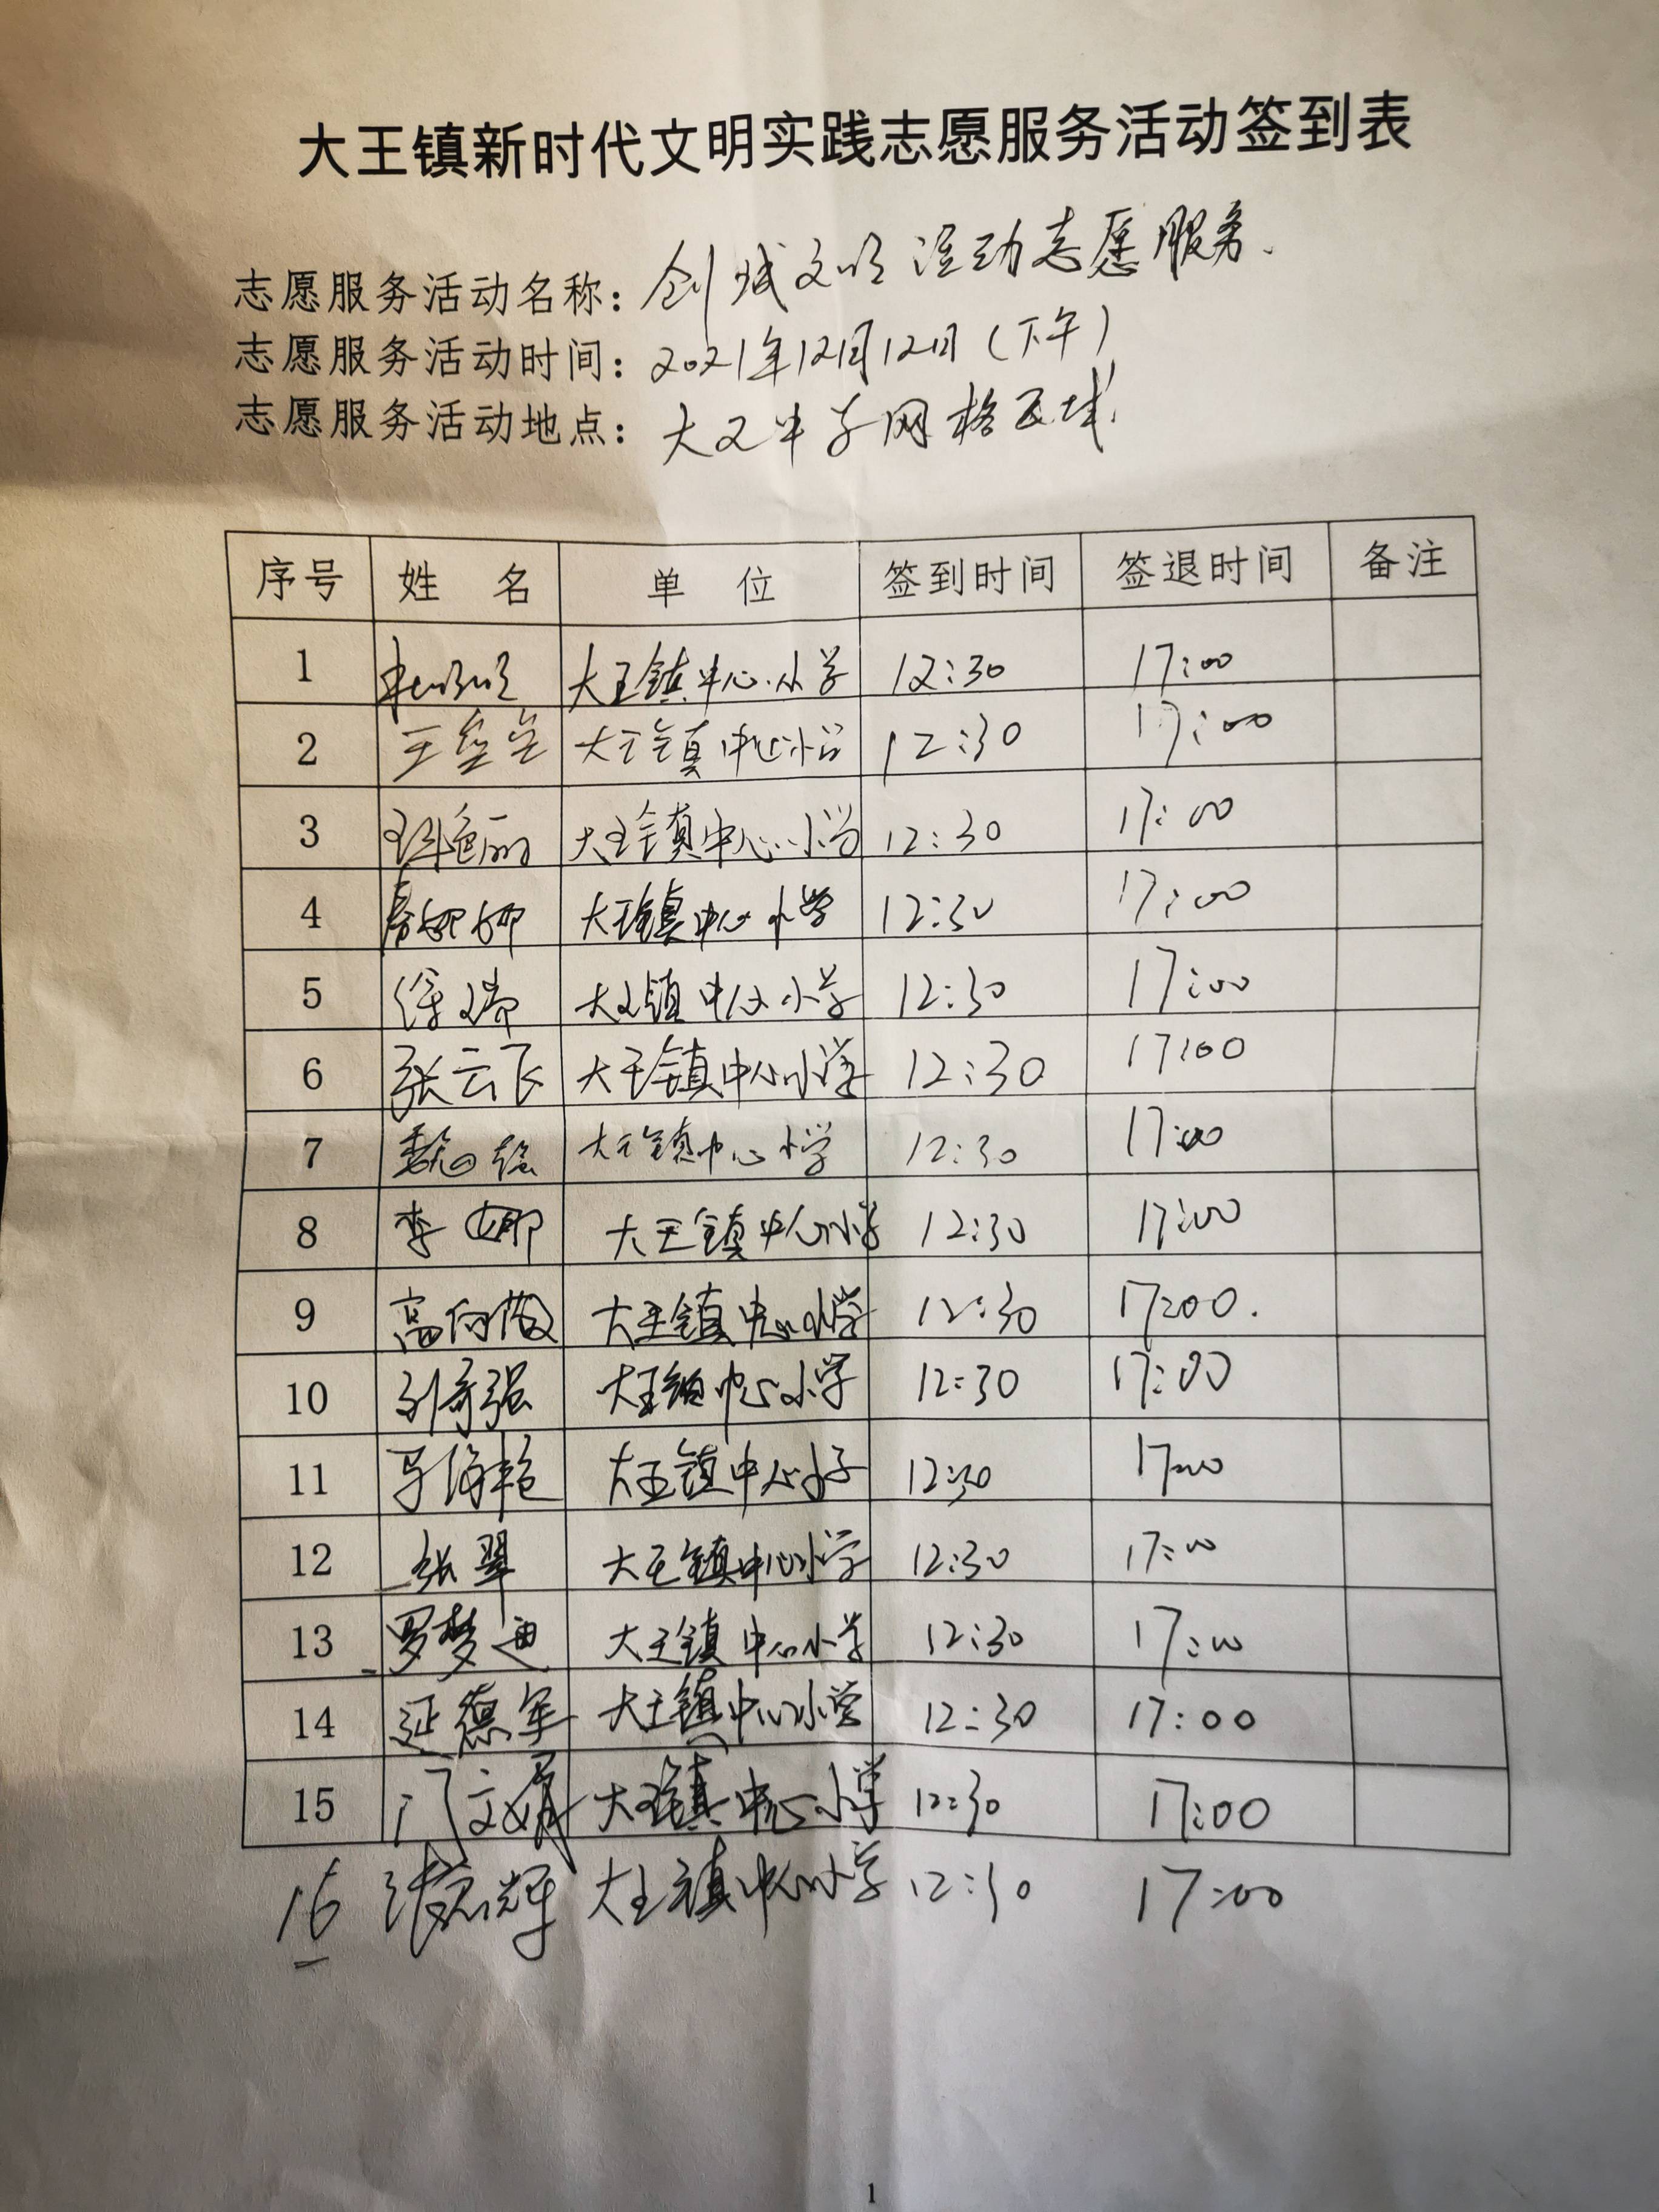 大王镇新时代文明实践志愿服务活动签到表
志愿服务活动名称：创城文明活动志愿服务.
志愿服务活动时间：2021年12月12日（下午）
志愿服务活动地点：大王中学网格区域.
序号 姓 名 单 位 签到时间 签退时间 备注
1 大王镇中心小学 12:30 17:00
2 王 大王镇中心小学 12:30 17:00
3 大王镇中心小学 12:30 17:00
4 大王镇中心小学 12:30 17:00
5 徐瑞 大王镇中心小学 12:30 17:00
6 张云飞 大王镇中心小学 12:30 17:00
7 大王镇中心小学 12:30 17:00
8 李娜 大王镇中心小学 12:30 17:00
9 高向敏 大王镇中心小学 12:30 17:00.
10 刘奇强 大王镇中心小学 12:30 17:00
11 马海艳 大王镇中心小学 12:30 17:00
12 张翠 大王镇中心小学 12:30 17:00
13 罗梦迪 大王镇中心小学 12:30 17:00
14 延德军 大王镇中心小学 12:30 17:00
15 门文 大王镇中心小学 12:30 17:00
16 大王镇中心小学 12:30 17:00
1